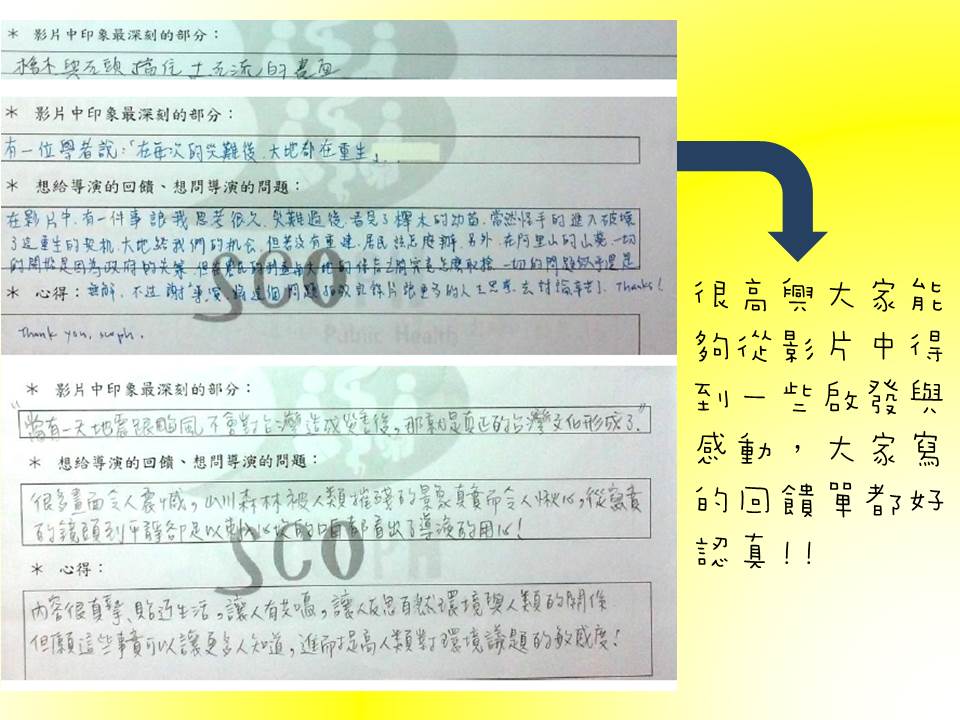 * 影片中印象最深刻的部分：
擋住土石流的畫面
* 影片中印象最深刻的部分：
有一位學者說：「在每次的災難後，大地都在重生」...
* 想給導演的回饋、想問導演的問題：
在影片中，有一件事讓我思考很久，災難過後，看見了櫸木的幼苗，當然怪手的進入破壞
了這重生的契机，大地給我們的机会，但若沒有重建，居民該怎麼辦，另外，在阿里山的山葵，一切
的開始是因為政府的失策，但在農民的利益與大地的 之前究竟怎麼取捨，一切的問題似乎還是
* 心得：無解，不过謝謝導演將這個問題拍成紀錄片讓更多的人去思考、去討論，辛苦了，Thanks!
Thank you, scoph.
SCO
Public Health
* 影片中印象最深刻的部分：
"當有一天地震跟颱風不會對台灣造成災害後，那就是真正的台灣文化形成了."
* 想給導演的回饋、想問導演的問題：
很多畫面令人震憾，山川森林被人類摧殘的景象真實而令人揪心，從寫實
的鏡頭到平靜卻足以刺 的口白都看出了導演的用心！
SCOPH
* 心得：
內容很真摯、貼近生活，讓人有共鳴，讓人反思自然環境與人類的關係
但願這些事實可以讓更多人知道，進而提高人類對環境議題的敏感度！
很高興大家能
夠從影片中得
到一些啟發與
感動，大家寫
的回饋單都好
認真！！